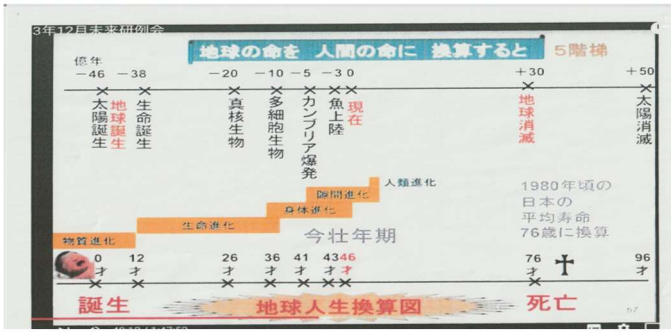 3年12月未来研例会
地球の命を 人間の命に 換算すると
5階梯
億年
－46 －38 －20 －10 －5 －3 0 ＋30 ＋50
太陽誕生
地球誕生
生命誕生
真核生物
多細胞生物
カンブリア爆発
魚上陸
現在
地球消滅
太陽消滅
人類進化
隙間進化
身体進化
生命進化
物質進化
1980年頃の
日本の
平均寿命
76歳に換算
今壮年期
0才 12才 26才 36才 41才 43才 46才 76才 96才
誕生
地球人生換算図
死亡
57